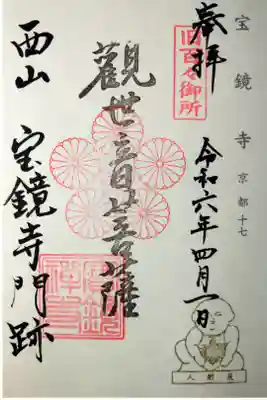 宝鏡寺 京都十七
奉拝
旧百々御所
令和六年四月一日
觀世音菩薩
西山 宝鏡寺門跡
人形展